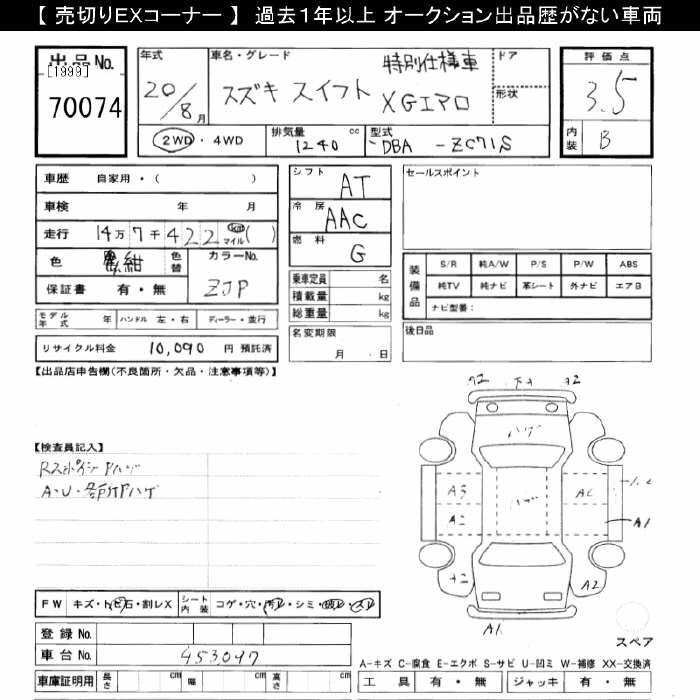 【 売切りEXコーナー 】 過去1年以上 オークション出品歴がない車両
出品No.
[1999]
70074
年式
20/8月
車名・グレード
スズキ スイフト
特別仕様車
XGエアロ
ドア
形状
評価点
3.5
内装
B
2WD ・ 4WD
排気量
1240 cc
型式
DBA - ZC71S
車歴 自家用・( )
車検 年 月
走行 14万 7千 422 km マイル ( )
色 紺 色替
カラーNo.
ZJP
保証書 有・無
モデル年式 年 ハンドル 左・右 ディーラー・並行
リサイクル料金 10,090 円 預託済
シフト
AT
冷房
AAC
燃料
G
乗車定員 名
積載量 kg
総重量 kg
名変期限
月 日
セールスポイント
装備品
S/R 純A/W P/S P/W ABS
純TV 純ナビ 革シート 外ナビ エアB
ナビ型番:
後日品
【出品店申告欄(不良箇所・欠品・注意事項等)】
【検査員記入】
Rスポイラー Pハゲ
A・U・各所Pハゲ
A2 A2
ハゲ
ハゲ
A3
A2
A2
A1
A2
A1
スペア
FW キズ・トビ石・割レX
シート内装 コゲ・穴・汚レ・シミ・破レ・スレ
登録No.
車台No. 453047
車庫証明用 長さ cm 幅 cm 高さ cm
A-キズ C-腐食 E-エクボ S-サビ U-凹ミ W-補修 XX-交換済
工具 有・無 ジャッキ 有・無